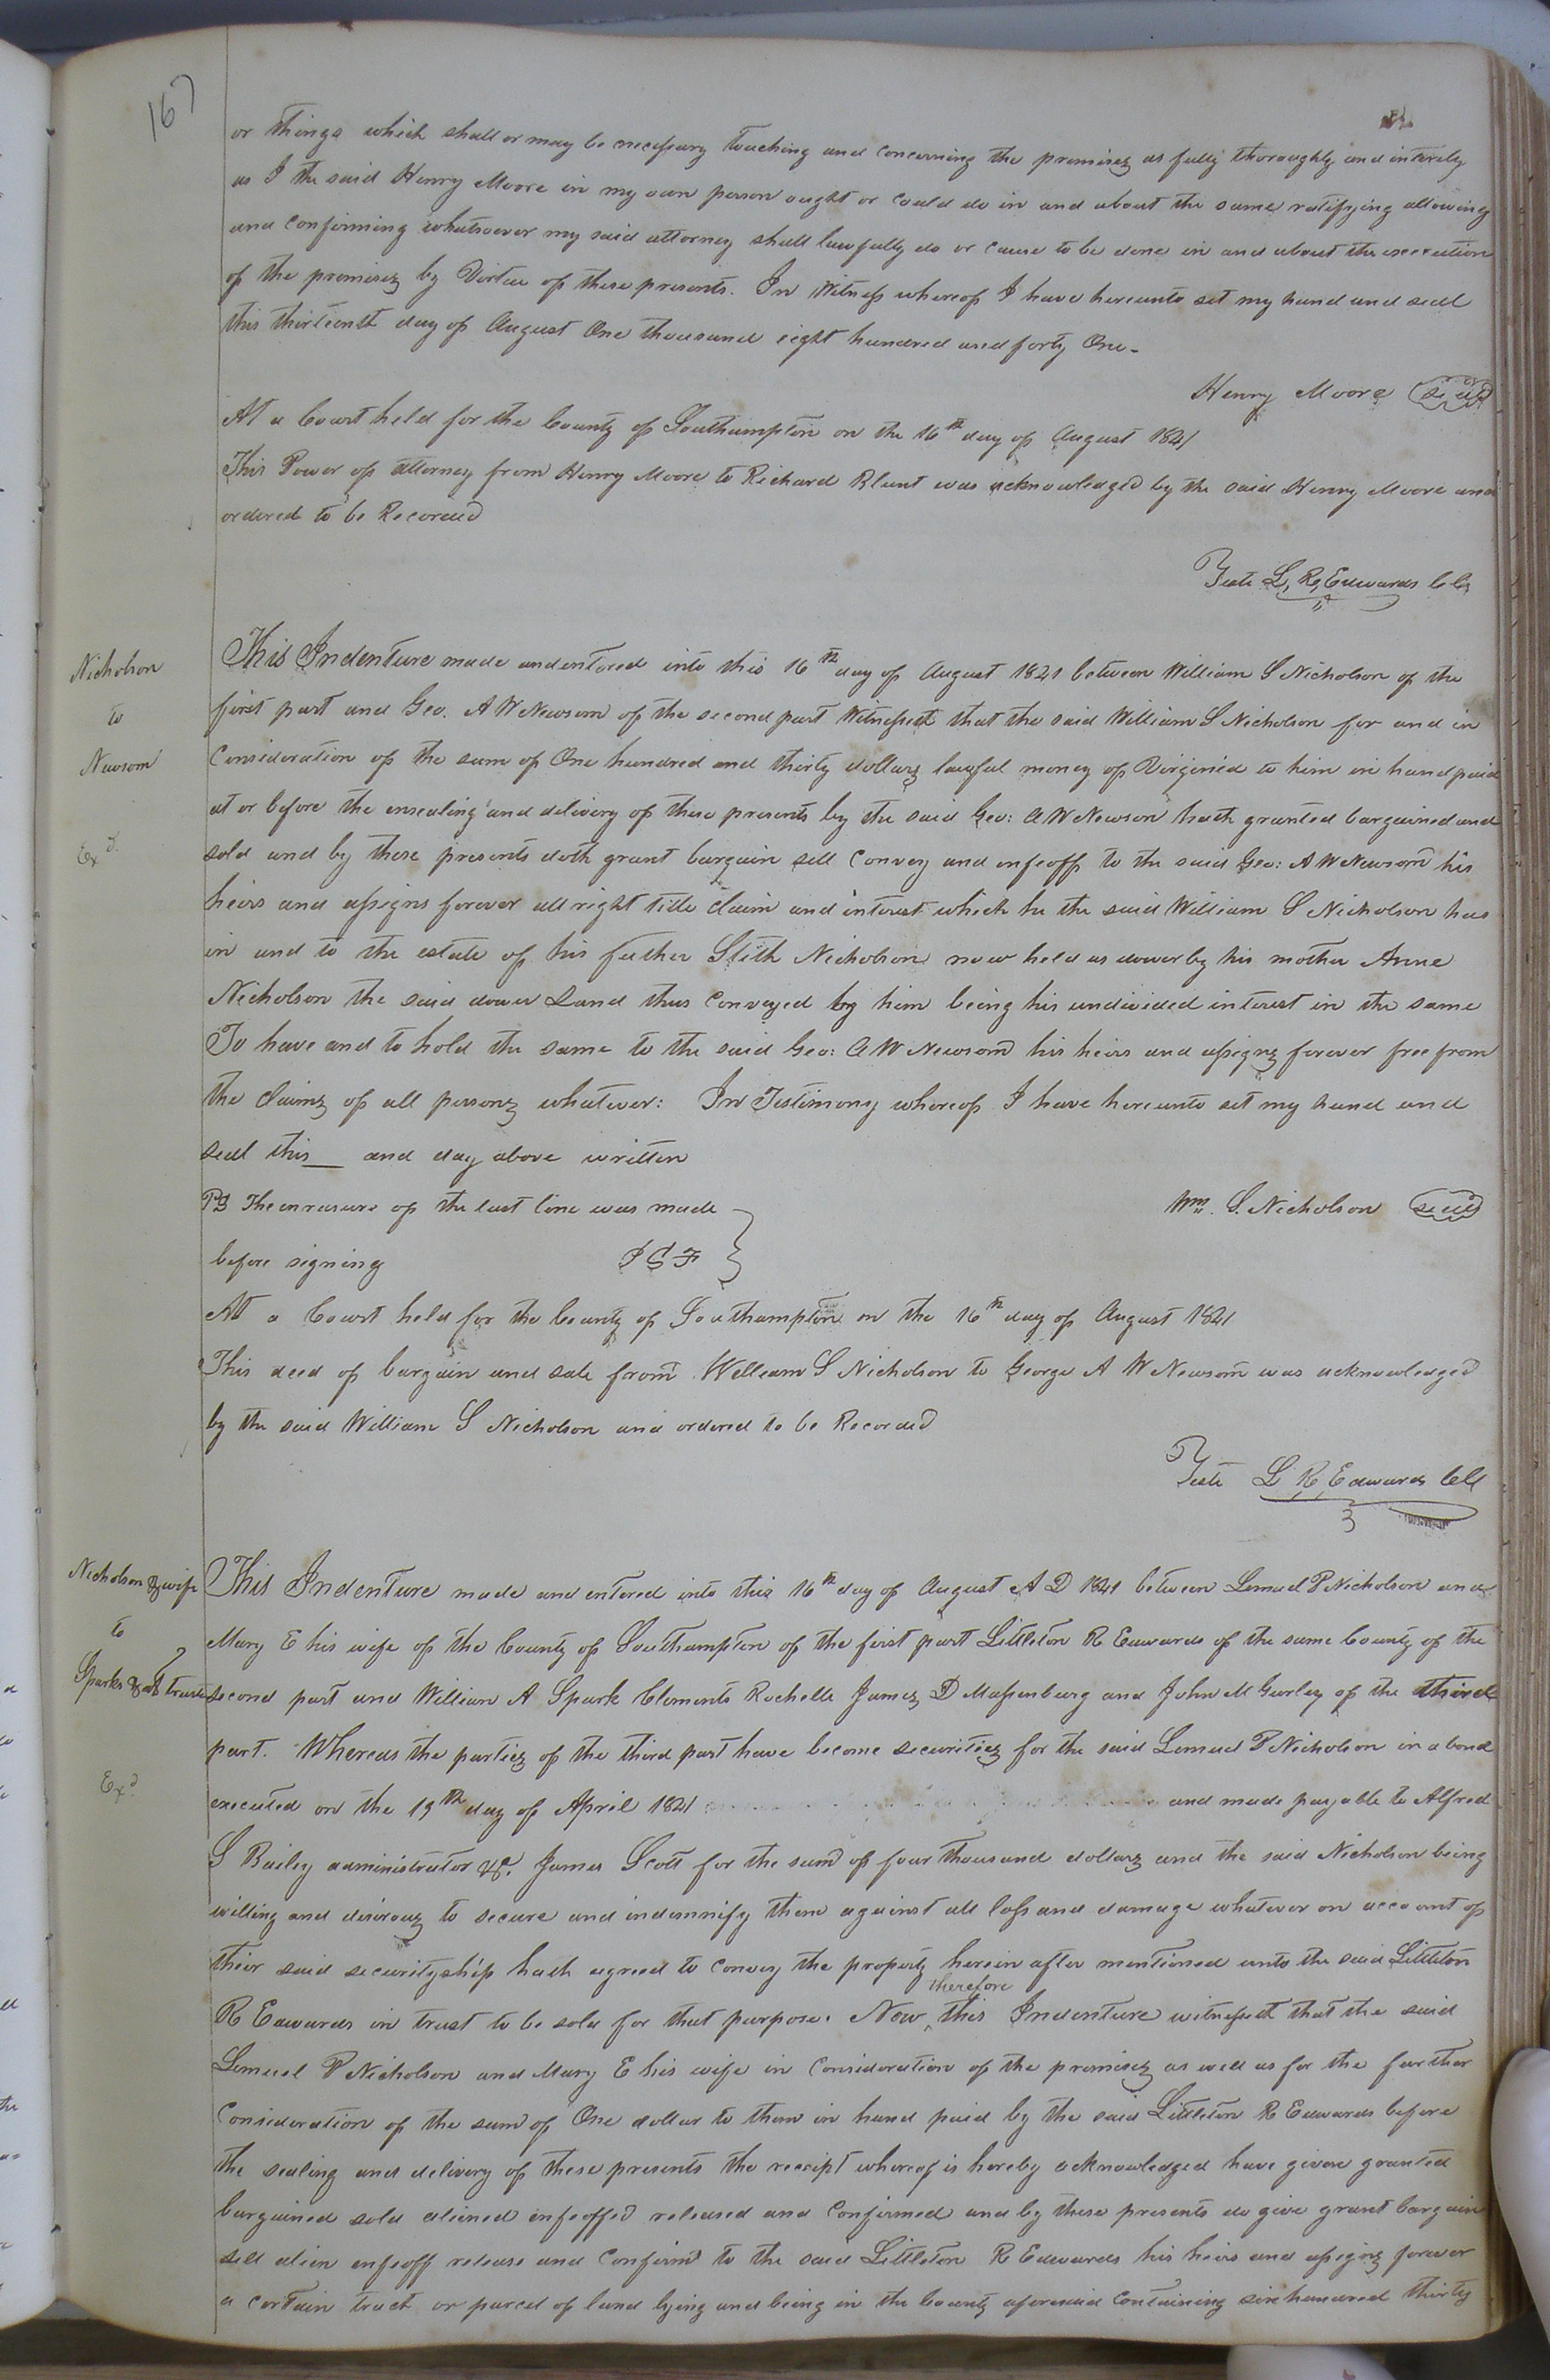 167
or things which shall or may be necessary touching and concerning the premises as fully thoroughly and intirely
as I the said Henry Moore in my own person ought or could do in and about the same ratifying allowing
and confirming whatsoever my said attorney shall lawfully do or cause to be done in and about the execution
of the premises by Virtue of these presents. In Witness whereof I have hereunto set my hand and seal
this thirteenth day of August One thousand eight hundred and forty One-
Henry Moore seal
At a Court held for the County of Southampton on the 16th day of August 1841
This Power of attorney from Henry Moore to Richard Blunt was acknowledged by the said Henry Moore and
ordered to be Recorded
Teste L. R. Edwards
Nicholson
to
Newsom
Exd.
This Indenture made and entered into this 16th day of August 1841 between William S Nicholson of the
first part and Geo. A W Newsom of the second part Witnesseth that the said William S Nicholson for and in
Consideration of the sum of One hundred and thirty dollars lawful money of Virginia to him in hand paid
at or before the ensealing and delivery of these presents by the said Geo: A W Newsom hath granted bargained and
sold and by these presents doth grant bargain sell Convey and enfeoff to the said Geo: A W Newsom his
heirs and assigns forever all right title claim and interest which he the said William S Nicholson has
in and to the estate of his father Stith Nicholson now held as dower by his mother Anne
Nicholson the said dower Land thus Conveyed by him being his undivided interest in the same
To have and to hold the same to the said Geo: A W Newsom his heirs and assigns forever free from
the claims of all persons whatever: In Testimony whereof I have hereunto set my hand and
seal this__ and day above written
PS The enrasure of the last line was made
before signing
Wm. S. Nicholson seal
At a Court held for the County of Southampton on the 16th day of August 1841
This deed of bargain and sale from William S Nicholson to George A W Newsom was acknowledged
by the said William S Nicholson and ordered to be Recorded
Teste L R Edwards
Nicholson & wife
to
Sparks &als trustee
Exd.
This Indenture made and entered into this 16th day of August A D 1841 between Lemuel P Nicholson and
Mary E his wife of the County of Southampton of the first part Littleton R Edwards of the same County of the
second part and William A Spark Clements Rochelle James D Massenburg and John M Gurley of the third
part. Whereas the parties of the third part have become securities for the said Lemuel P Nicholson in a bond
executed on the 19th day of April 1841 and made payable to Alfred
S Bailey administrator &c. James Scott for the sum of four thousand dollars and the said Nicholson being
willing and desirous to secure and indemnify them against all loss and damage whatever on account of
their said securityship hath agreed to convey the property herein after mentioned unto the said Littleton
R Edwards in trust to be sold for that purpose. Now therefore this Indenture witnesseth that the said
Lemuel P Nicholson and Mary E his wife in Consideration of the premises as well as for the further
Consideration of the sum of One dollar to them in hand paid by the said Littleton R Edwards before
the sealing and delivery of these presents the receipt whereof is hereby acknowledged have given granted
bargained sold aliened enfeoffed released and Confirmed and by these presents do give grant bargain
sell alien enfeoff release and Confirm to the said Littleton R Edwards his heirs and assigns forever
a certain tract or parcel of land lying and being in the County aforesaid Containing six hundred thirty